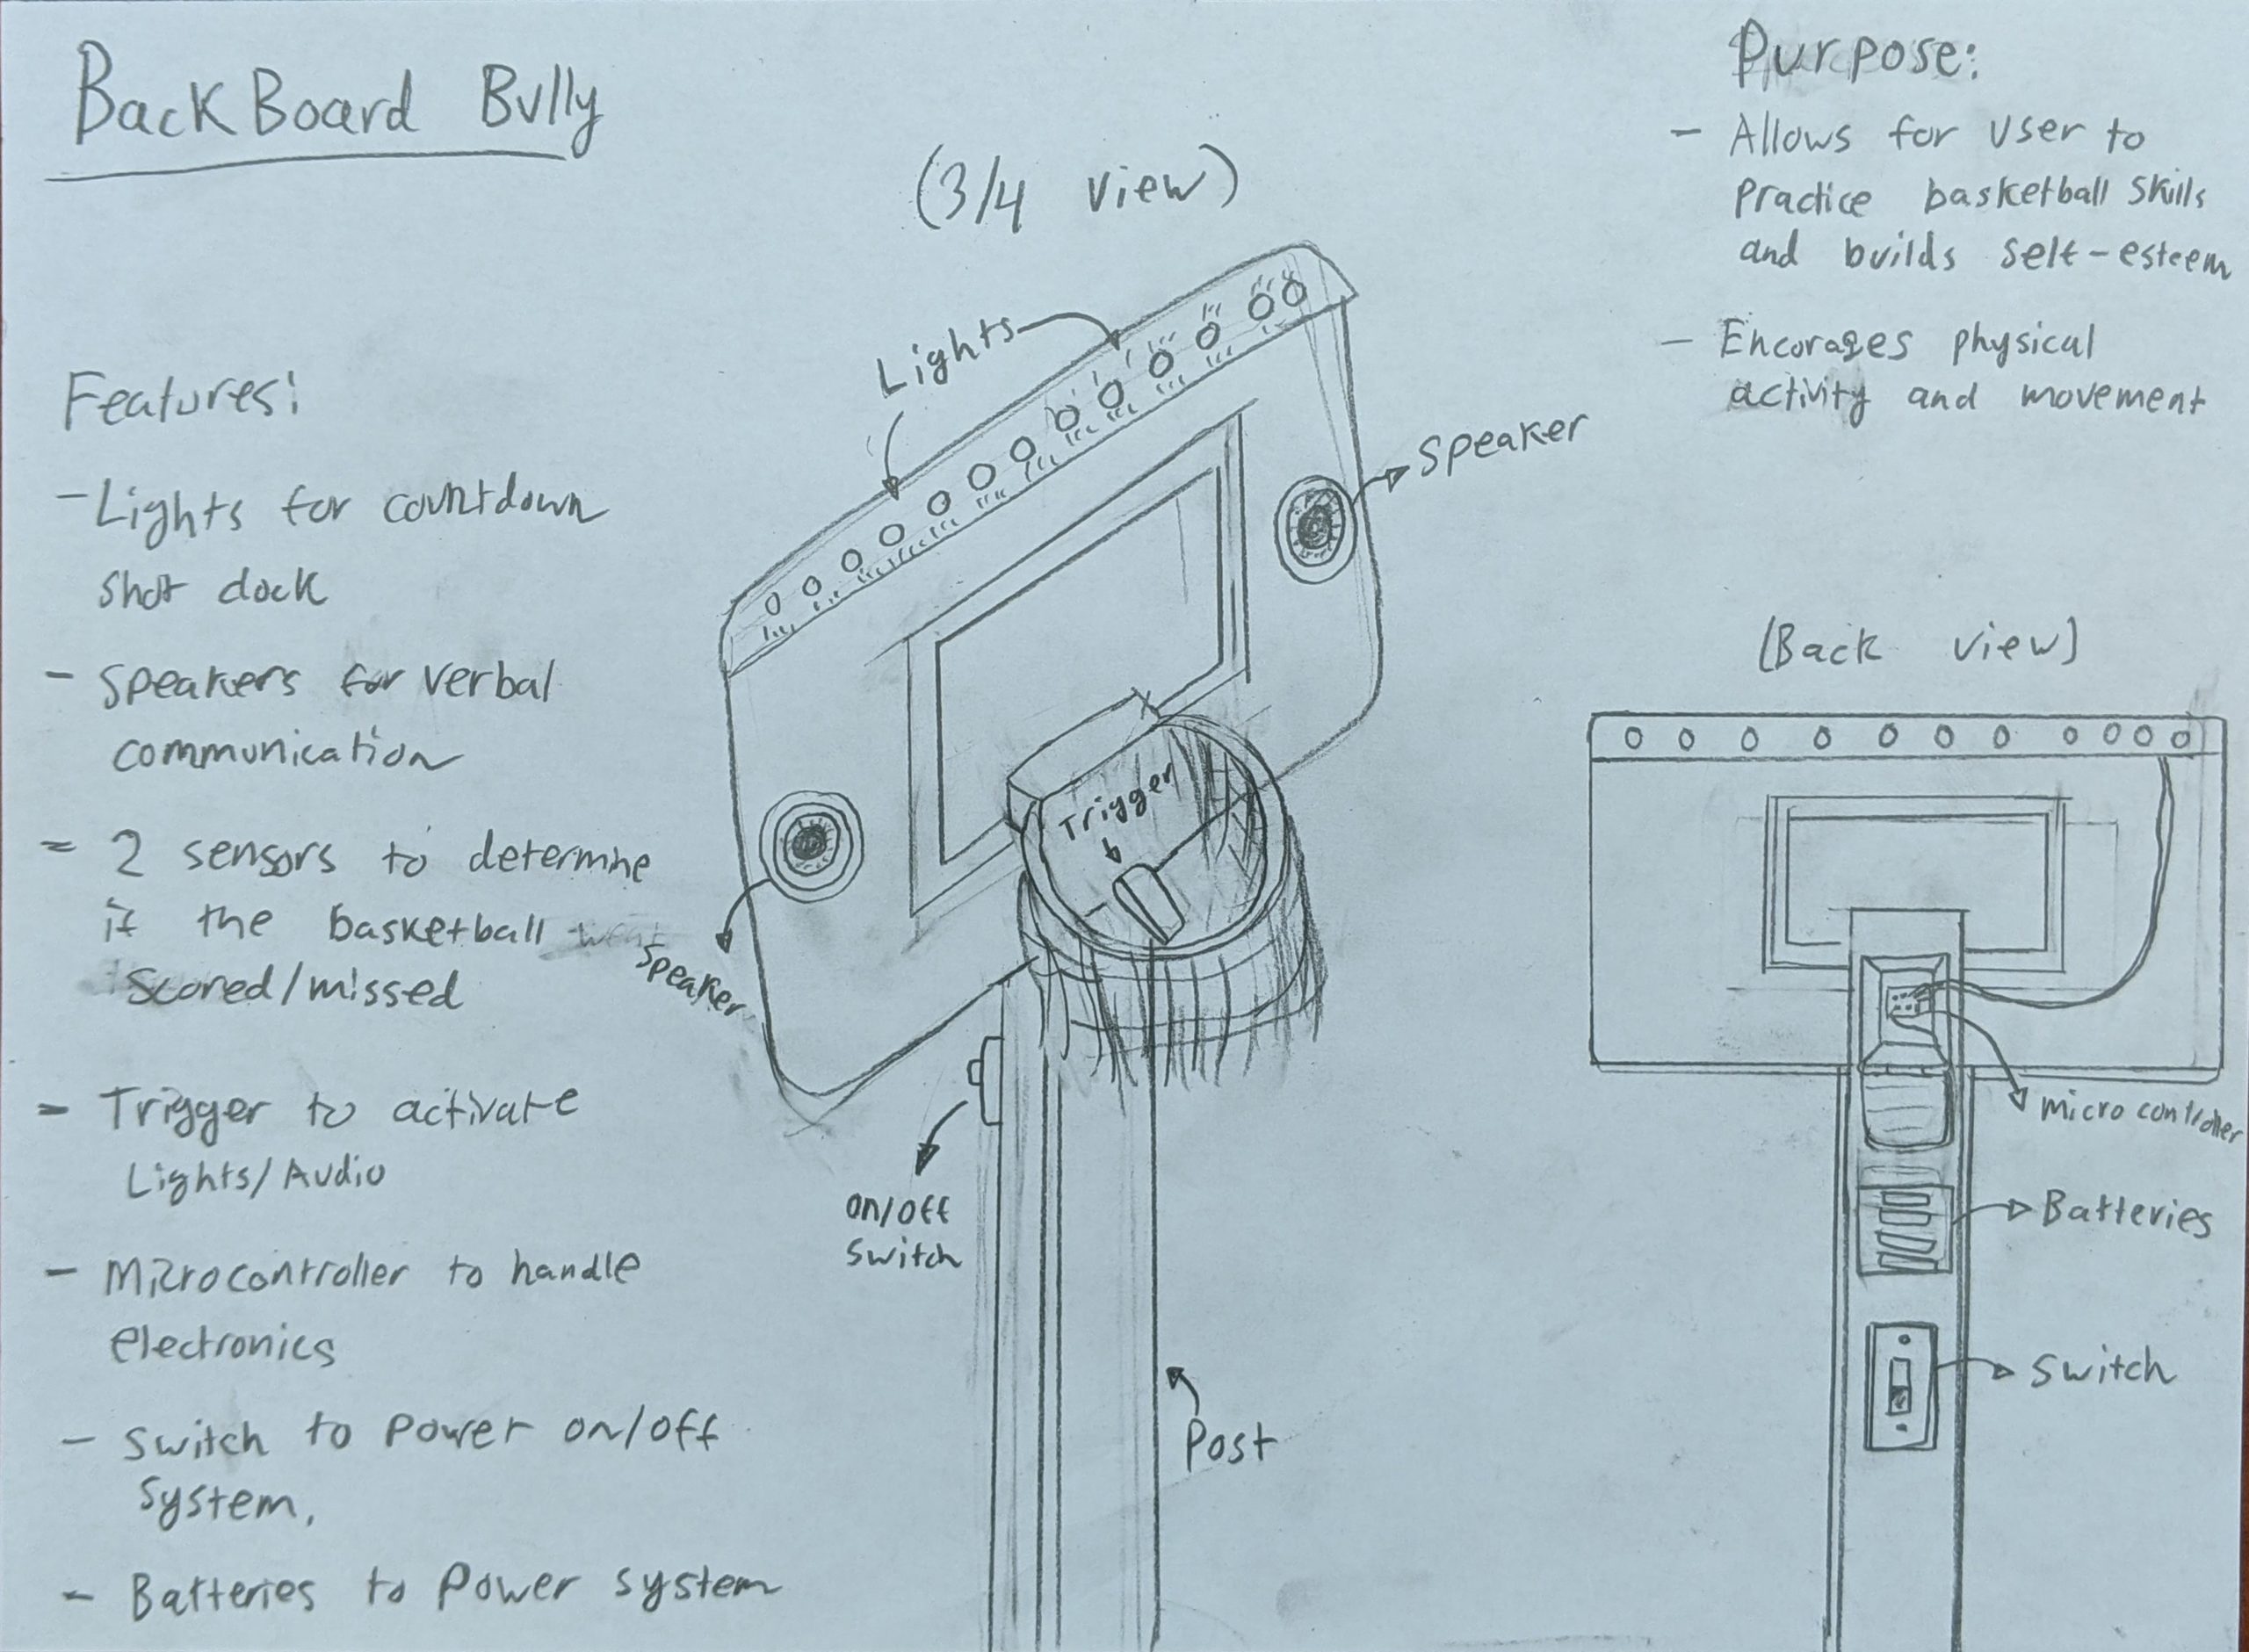 BackBoard Bully
Features:
- Lights for countdown
shot clock
- Speakers for verbal
communication
= 2 sensors to determine
if the basketball went
Scored/missed
= Trigger to activate
Lights/Audio
- Microcontroller to handle
electronics
- Switch to power on/off
system.
- Batteries to power system
(3/4 view)
Lights
Speaker
Trigger
Speaker
on/off
switch
Post
Purpose:
- Allows for user to
practice basketball skills
and builds self-esteem
- Encorages physical
activity and movement
(Back view)
micro controller
Batteries
Switch